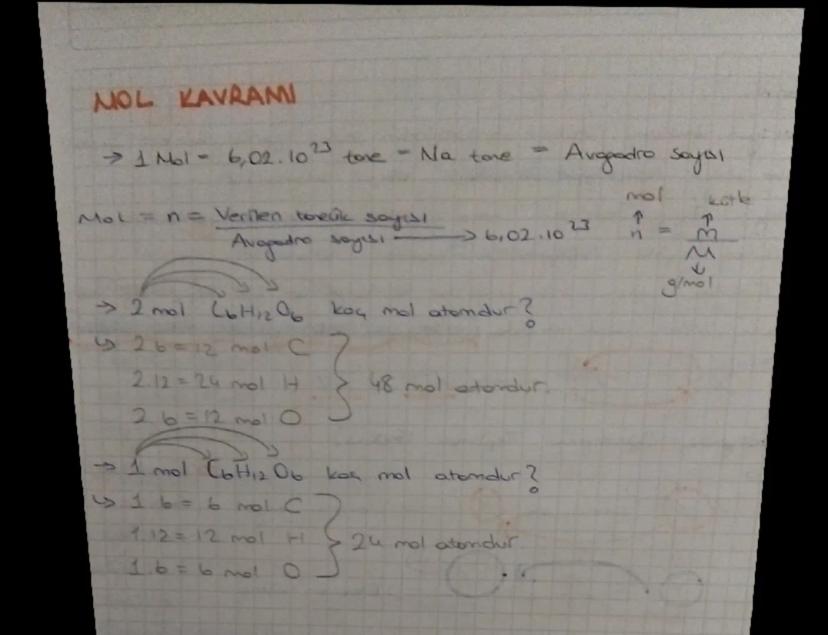 MOL KAVRAMI
→ 1 Mol = 6,02.10²³ tane = Na tane = Avogadro sayısı
Mol = n = Verilen tanecik sayısı / Avogadro sayısı → 6,02.10²³
mol kütle
n = m / M
g/mol
→ 2 mol C₆H₁₂O₆ kaç mol atomdur?
↳ 2.6 = 12 mol C
2.12 = 24 mol H } 48 mol atomdur.
2.6 = 12 mol O
→ 1 mol C₆H₁₂O₆ kaç mol atomdur?
↳ 1.6 = 6 mol C
1.12 = 12 mol H } 24 mol atomdur.
1.6 = 6 mol O